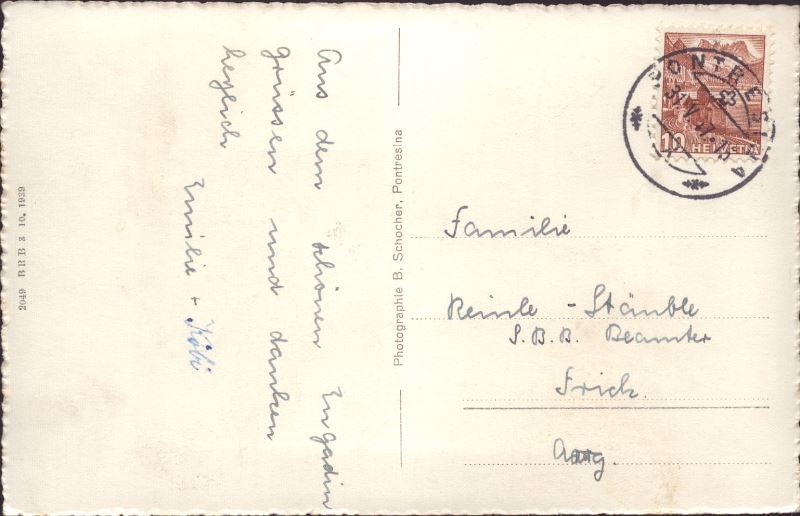 Aus dem schönen Engadin
grüssen und danken
herzlich
Emilie + Köbi
2049 BRB 3. 10. 1939
Photographie B. Schocher, Pontresina
PONTRESINA
10 HELVETIA
Familie
Reinle - Stäuble
S.B.B. Beamter
Frick.
Aarg.